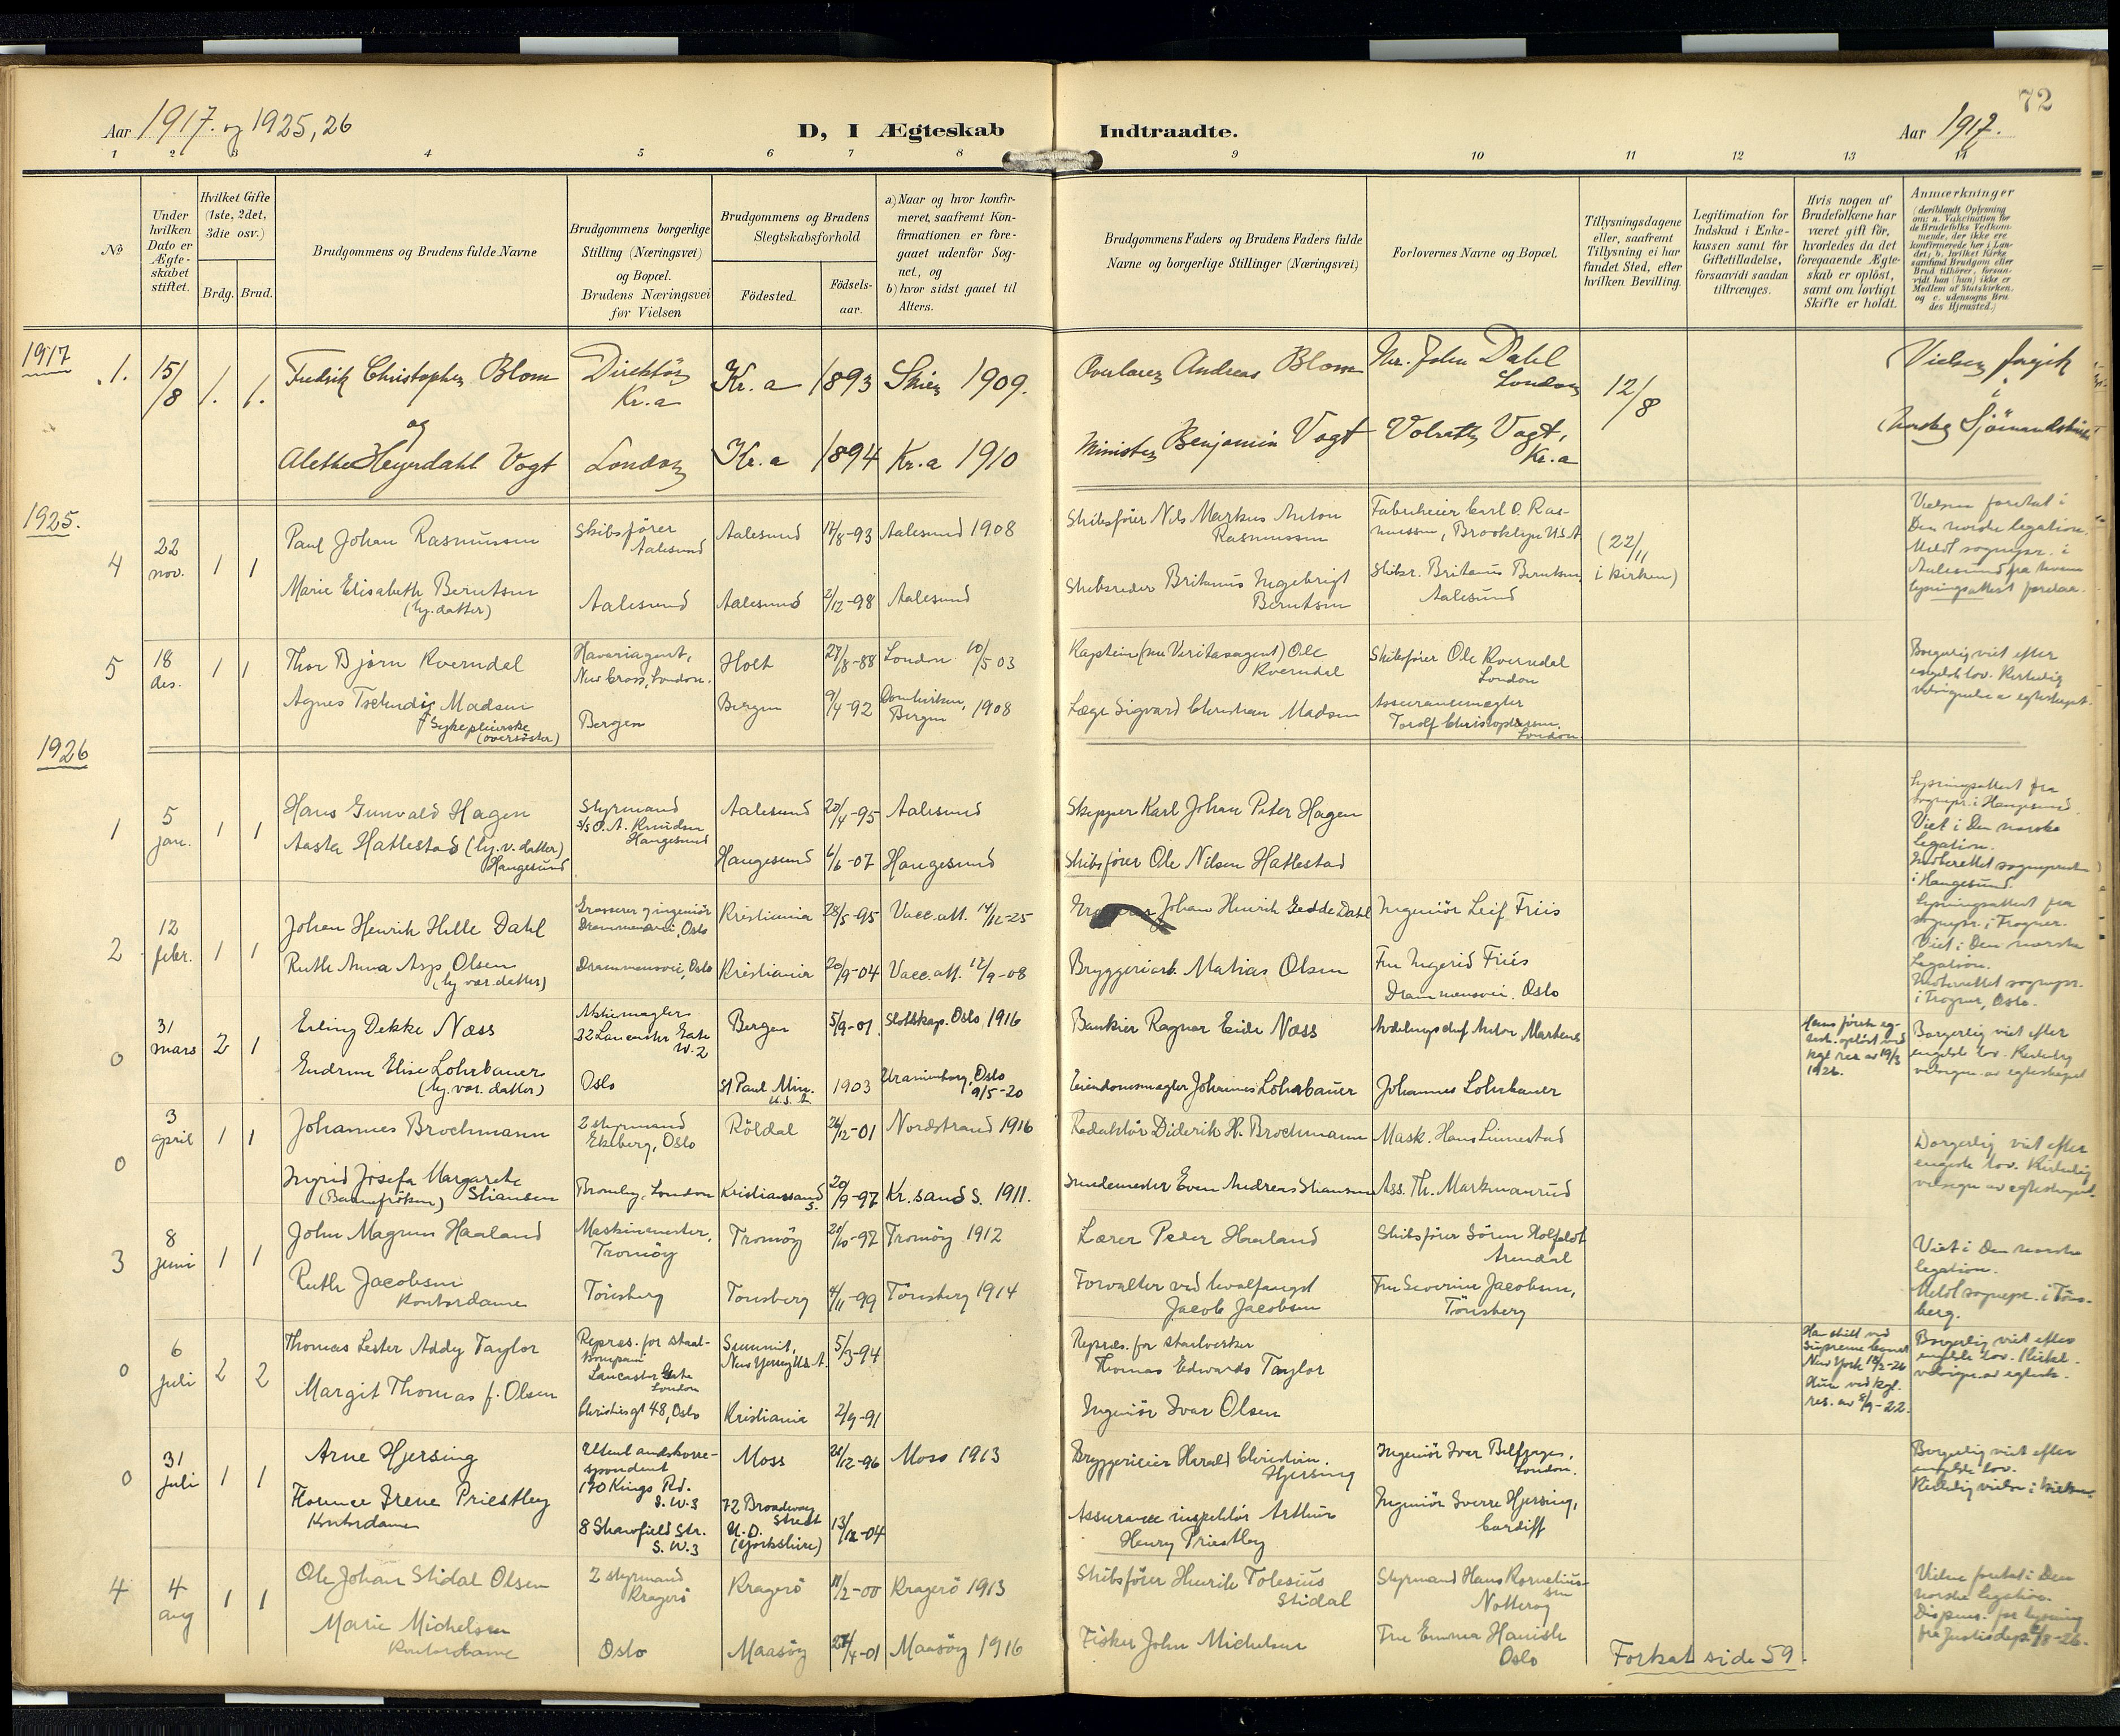 72
Aar 1917. og 1925, 26
D, I Ægteskab Indtraadte.
Aar 1917.
1 2 3 4 5 6 7 8 9 10 11 12 13 14
No
Under hvilken Dato er Ægteskabet stiftet.
Hvilket Gifte (1ste, 2det, 3die osv.)
Brdg. Brud.
Brudgommens og Brudens fulde Navne
Brudgommens borgerlige Stilling (Næringsvei) og Bopæl. Brudens Næringsvei før Vielsen
Brudgommens og Brudens Slegtskabsforhold
Födested.
Födsels-aar.
a) Naar og hvor konfirmeret, saafremt Konfirmationen er foregaaet udenfor Sognet, og
b) hvor sidst gaaet til Alters.
Brudgommens Faders og Brudens Faders fulde Navne og borgerlige Stillinger (Næringsvei)
Forlovernes Navne og Bopæl.
Tillysningsdagene eller, saafremt Tillysning ei har fundet Sted, efter hvilken Bevilling.
Legitimation for Indskud i Enkekassen samt for Giftetilladelse, forsaavidt saadan tiltrænges.
Hvis nogen af Brudefolkene har været gift før, hvorledes da det foregaaende Ægteskab er oplöst, samt om lovligt Skifte er holdt.
Anmærkninger
(deriblandt Oplysning om: a. Vakcination for de Brudefolks Vedkommende, der ikke ere konfirmerede her i Landet; b. hvilket Kirkesamfund Brudgom eller Brud tilhörer, forsaavidt han (hun) ikke er Medlem af Statskirken. og c. udensogns Brudes Hjemsted.)
1917
1. 15/8 1. 1. Fredrik Christopher Blom Direktör Kr.a Kr.a 1893 Skien 1909. Overlærer Andreas Blom Mr. John Dahl London 12/8 Vielsen foregik i
og
Alethe Heyerdahl Vogt London Kr.a 1894 Kr.a 1910 Minister Benjamin Vogt Volrath Vogt, Kr.a norske Sjömandskirke
1925.
4 22 nov. 1 1 Paul Johan Rasmussen Skibsfører Aalesund Aalesund 14/8-93 Aalesund 1908 Skibsfører Nils Markus Anton Rasmussen Fabrikeier Carl O. Rasmussen, Brooklyn U.S.A (22/11 i kirken) Vielsen foretat i Den norske legation. Meldt sognepr. i Aalesund fra hvem lysningsattest forelaa.
Marie Elisabeth Berntsen (hj. datter) Aalesund Aalesund 2/12-98 Aalesund Skibsreder Britanus Ingebrigt Berntsen Skibsr. Britanus Berntsen Aalesund
5 18 des. 1 1 Thor Bjørn Kverndal Havariagent, New Cross, London. Holt 27/8-88 London 10/5 03 Kaptein (nu Veritasagent) Ole Kverndal Skibsfører Ole Kverndal London Borgerlig viet efter engelsk lov. Kirkelig velsignelse av egteskapet.
Agnes Tschudi Madsen Sykepleierske (oversøster) Bergen Bergen 9/4-92 Domkirken, Bergen 1908 Læge Sigvard Christian Madsen Assurancemægler Torolf Christophersen London.
1926
1 5 jan. 1 1 Hans Gunvald Hagen Styrmand s/s O. A. Knudsen Haugesund Aalesund 20/4-95 Aalesund Skipper Karl Johan Peter Hagen Lysningsattest fra sognepr. i Haugesund. Viet i Den norske legation. Indberettet sognepresten i Haugesund.
Aasta Hattestad (hj.v. datter) Haugesund Haugesund 6/6-07 Haugesund Skibsfører Ole Nilsen Hattestad
2 12 febr. 1 1 Johan Henrik Hille Dahl Grosserer og ingeniör Drammensvei, Oslo Kristiania 28/5-95 Vacc. att. 14/12-25 Johan Henrik Gedde Dahl Ingeniör Leif Friis Lysningsattest fra sognepr. i Frogner. Viet i Den norske Legation. Indberettet sognepr. i Frogner, Oslo.
Ruth Anna Asp Olsen (hj. vær. datter) Drammensvei, Oslo Kristiania 20/9-04 Vacc. att. 12/9-08 Bryggeriarb. Matias Olsen Fru Ingerid Friis Drammensvei. Oslo
0 31 mars 2 1 Erling Dekke Næss Aktiemægler 32 Lancaster Gate W.2 Bergen 5/9-01 Slotskap. Oslo 1916 Bankier Ragnar Eide Næss Avdelingschef Anton Martens Hans første egtesk. opløst ved kgl res av 19/3 1926. Borgerlig viet efter engelsk lov. Kirkelig velsign. av egteskapet
Gudrun Elise Lohrbauer (hj. vær. datter) Oslo St. Paul Min. U.S.A. 1903 Uranienborg, Oslo 9/5-20 Eiendomsmægler Johannes Lohrbauer Johannes Lohrbauer
0 3 april 1 1 Johannes Brochmann 2 styrmand Ekeberg, Oslo Röldal 26/12-01 Nordstrand 1916 Redaktör Diderik H. Brochmann Mask. Hans Linnestad Borgerlig viet efter engelsk lov. Kirkelig velsign av egteskapet.
Ingrid Josefa Margarete Stiansen (Barnefrøken) Bromley, London Kristianssand S. 20/9-97 Kr.sand S. 1911. Even Andreas Stiansen Ass. Th. Markmanrud
3 8 juni 1 1 John Magnus Haaland Maskinmester, Tromöy Tromöy 21/10-97 Tromöy 1912 Lærer Peder Haaland Skibsfører Sören Holfeldt Arendal Viet i Den norske legation. Meldt sognepr. i Tönsberg.
Ruth Jacobsen Kontordame Tönsberg Tönsberg 4/11-99 Tönsberg 1914 Forvalter ved hvalfangst Jacob Jacobsen Fru Severine Jacobsen, Tönsberg
0 6 juli 2 2 Thomas Lester Addy Taylor Repræs. for staalkompani Lancaster Gate London Summit, New Yersey U.S.A. 5/3-94 Repræs. for staalverker Thomas Edwards Taylor Han skilt ved Supreme Court New York 18/2-26 Hun ved kgl. res. av 8/9-22. Borgerlig viet efter engelsk lov. Kirkel. velsign. av egtesk.
Margit Thomas f. Olsen Christiesgt 48, Oslo Kristiania 2/9-91 Ingeniör Ivar Olsen
0 31 juli 1 1 Arne Hjersing Utenlandskorrespondent 170 Kings Rd. S.W.3 Moss 20/12-96 Moss 1913 Bryggerieier Harald Christian Hjersing Ingeniör Ivar London. Borgerlig viet efter engelsk lov. Kirkelig vielse i kirken.
Florence Irene Priestley Kontordame 8 Shawfield Str. S.W.3 72 Broadway Street U.D. (Yorkshire) 13/12-04 Assurance inspektör Arthur Henry Priestley Ingeniör Sverre Hjersing, Cardiff
4 4 aug 1 1 Ole Johan Stidal Olsen 2 styrmand Kragerö Kragerö 11/2-00 Kragerö 1913 Skibsfører Henrik Tolesius Stidal Styrmand Hans Korneliussen Nötteröy Vielse foretat i Den norske legation. Dispens. for lysning fra Justisdep. 2/8-26.
Marie Michelsen Kontordame Oslo Maasöy 27/4-01 Maasöy 1916 Fisker John Michelsen Fru Emma Hanish Oslo
Fortsat side 59.